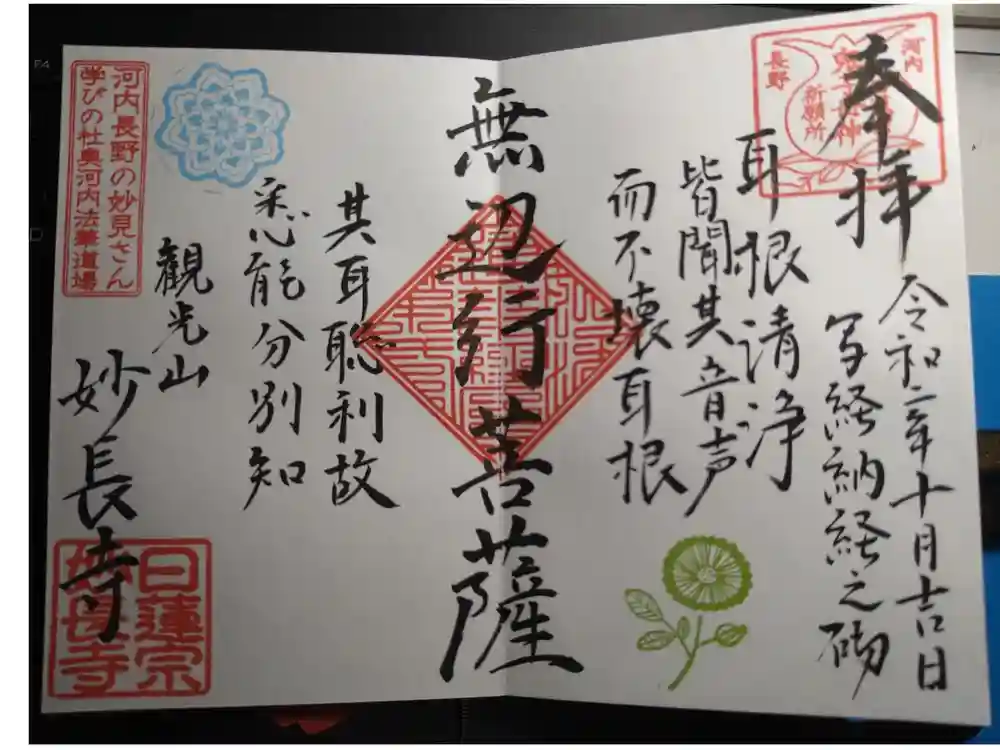 奉拝
河内
長野
祈願所
令和二年十月吉日
写経納経之砌
耳根清浄
皆聞其音声
而不壊耳根
無辺行菩薩
其耳聡利故
悉能分別知
観光山
妙長寺
河内長野の妙見さん
学びの杜奥河内法華道場
日蓮宗
妙長寺